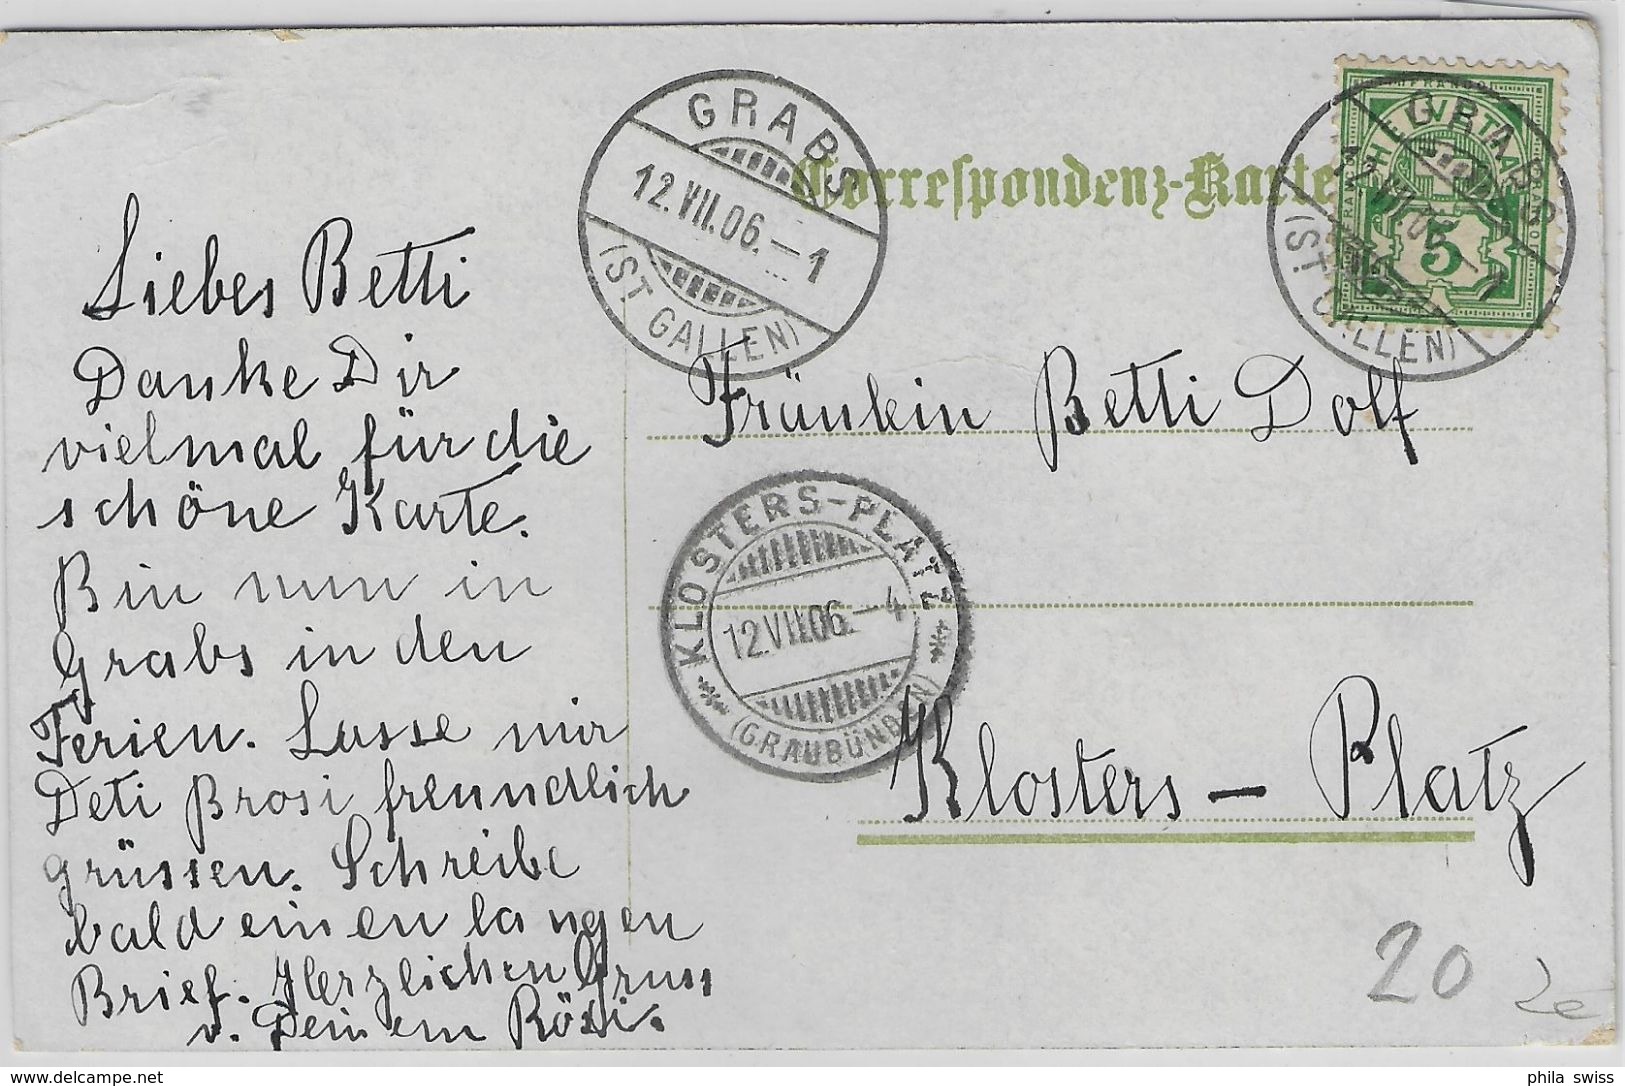 GRABS
12.VII.06.–1
(ST. GALLEN)
Correspondenz-Karte
HELVETIA
5
GRABS
12.VII.06.–1
(ST. GALLEN)
Liebes Betti
Danke Dir
vielmal für die
schöne Karte.
Bin nun in
Grabs in den
Ferien. Lasse mir
Deti Brosi freundlich
grüssen. Schreibe
bald einen langen
Brief. Herzlichen Gruss
v. Deinem Rösi.
Fräulein Betti Dolf
KLOSTERS-PLATZ
12.VII.06.–4
(GRAUBÜNDEN)
Klosters – Platz
20
delcampe.net
phila_swiss